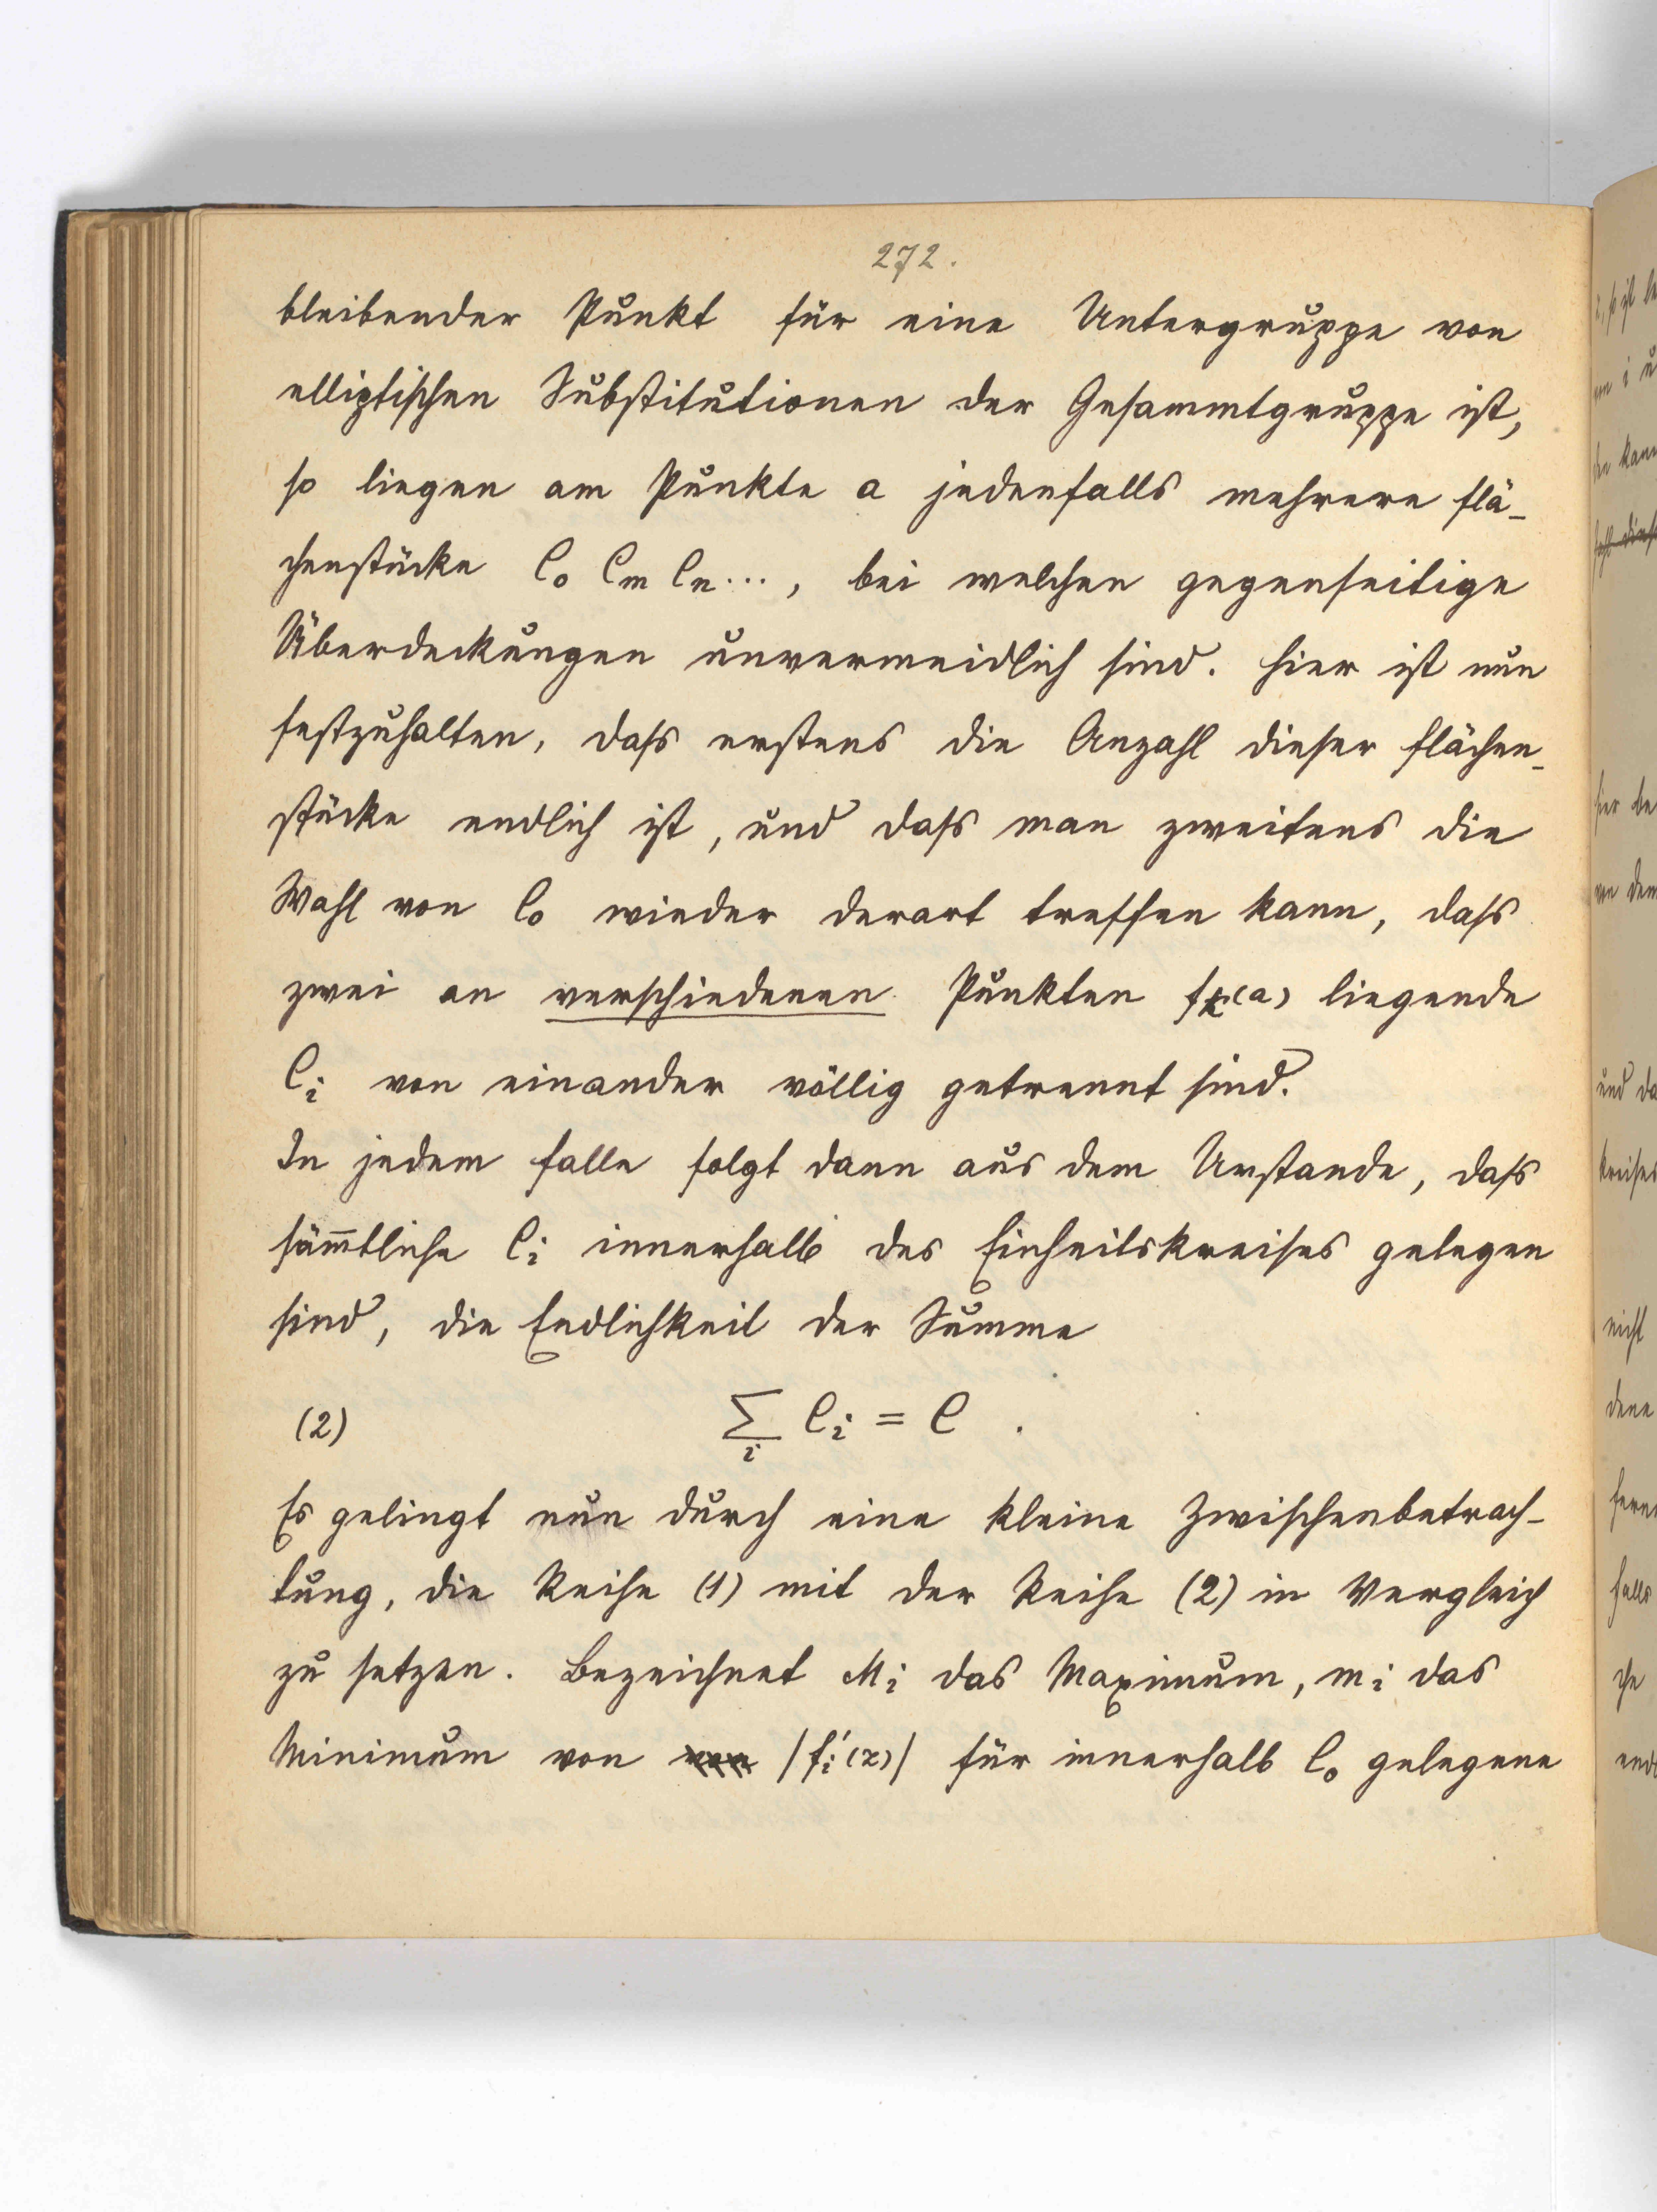 272.
bleibender Punkt für eine Untergruppe von
elliptischen Substitutionen der Gesammtgruppe ist,
so liegen am Punkte a jedenfalls mehrere Flä-
chenstücke C₀ Cₘ Cₙ..., bei welchen gegenseitige
Überdeckungen unvermeidlich sind. Hier ist nun
festzuhalten, dass erstens die Anzahl dieser Flächen-
stücke endlich ist, und dass man zweitens die
Wahl von C₀ wieder derart treffen kann, dass
zwei an verschiedenen Punkten fₖ(a) liegende
Cᵢ von einander völlig getrennt sind.
In jedem Falle folgt dann aus dem Umstande, dass
säm̄tliche Cᵢ innerhalb des Einheitskreises gelegen
sind, die Endlichkeit der Summe
(2) ∑ᵢ Cᵢ = C .
Es gelingt nun durch eine kleine Zwischenbetrach-
tung, die Reihe (1) mit der Reihe (2) in Vergleich
zu setzen. Bezeichnet Mᵢ das Maximum, mᵢ das
Minimum von |fᵢ'(z)| für innerhalb C₀ gelegene